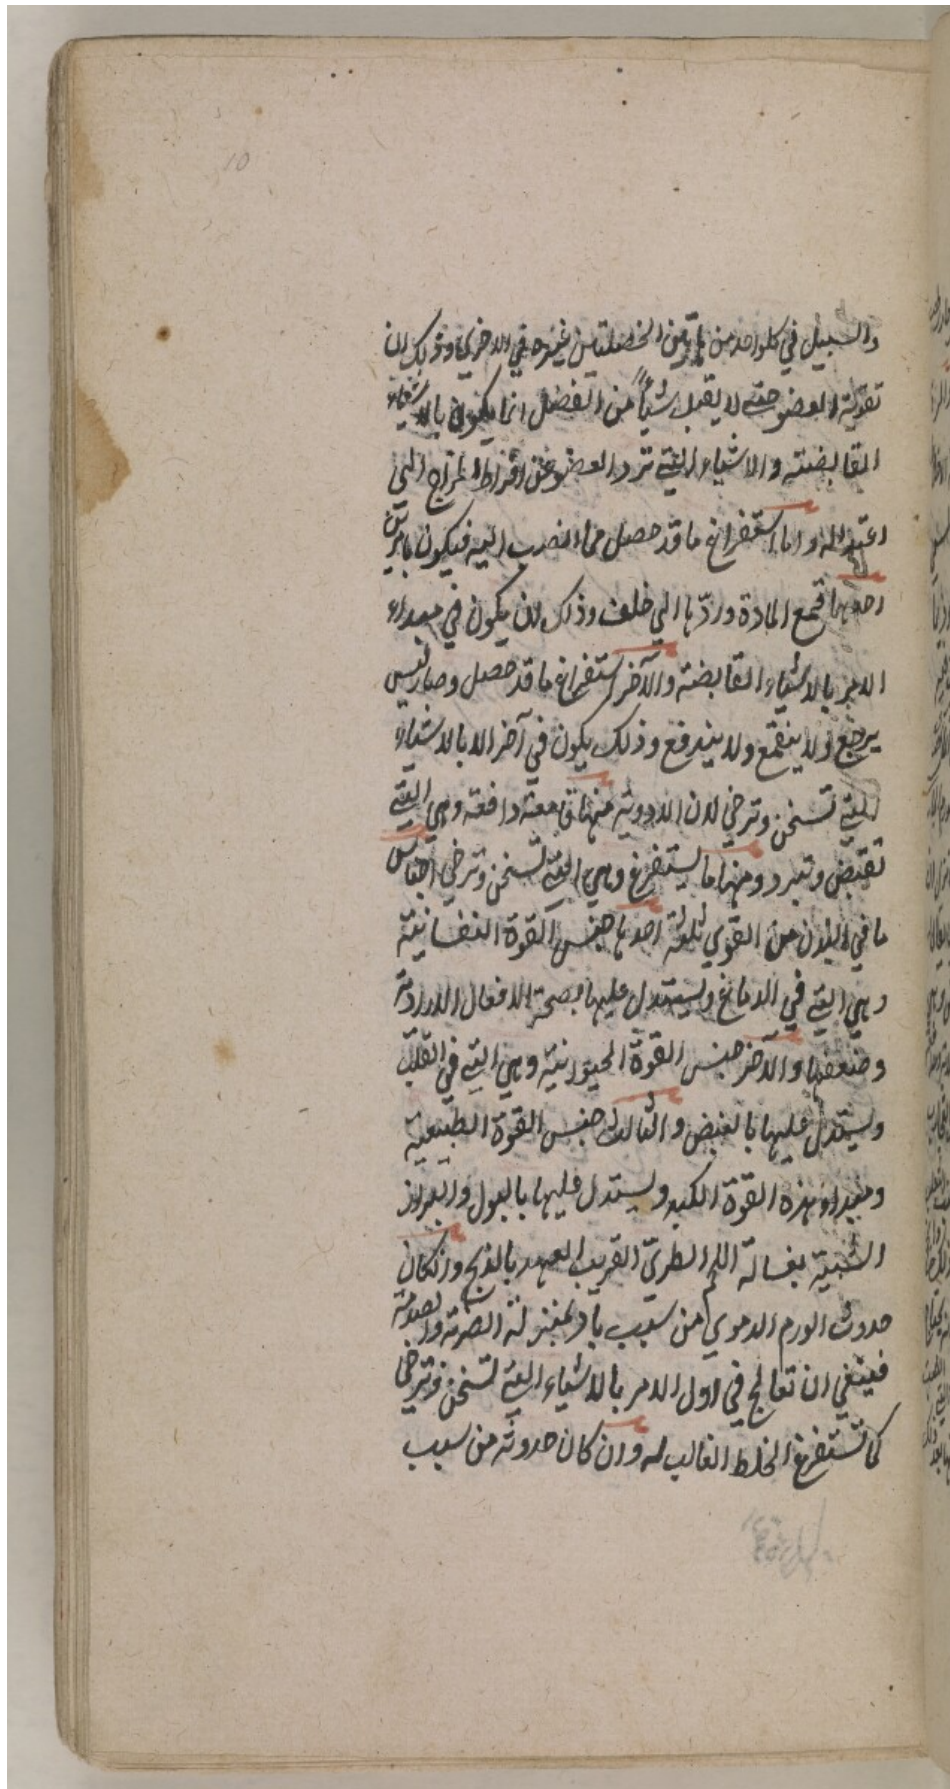 10
والسبيل في كلواحد من هاتين الخصلتين غيره في الاخري وذلك ان
تقوية العضو حتي لا يقبل شيأً من الفضل انما يكون بالاشياء
القابضة والاشياء التي ترد العضو عن افراط المزاج الي
اعتداله واما استفراغ ما قد حصل مما انصب اليه فيكون بامرين
احدهما قمع المادة وردّها الي خلف وذلك لان يكون في مبداء
الامر بالاشياء القابضة والآخر استفراغ ما قد حصل وصار ليس
يرجع ولا ينقمع ولا يندفع وذلك يكون في آخر الا بالاشياء
التي تسخن وترخي لان الادوية منها قامعة دافعة وهي التي
تقبض وتبرد ومنها ما يستفرغ وهي التي تسخن وترخي اجناس
ما في البدن من القوي ثلثة احدها جنس القوة النفسانية
وهي التي في الدماغ ويستدل عليها بصحة الافعال الارادية
وضعفها والآخر جنس القوة الحيوانية وهي التي في القلب
ويستدل عليها بالنبض والثالث جنس القوة الطبيعية
ومبداء هذه القوة الكبد ويستدل عليها بالبول والبراز
الشبية بغسالة اللحم الطريّ القريب العهد بالذبح وان كان
حدوث الورم الدموي من سبب باد بمنزلة الضربة والصدمة
فينبغي ان تعالج في اول الامر بالاشياء التي تسخن وترخي
كما تستفرغ الخلط الغالب له وان كان حدوثه من سبب